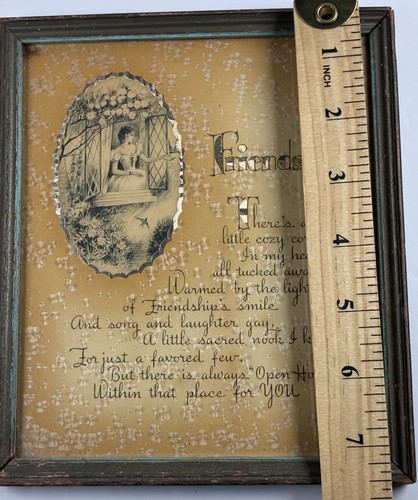 Friends
There's a
little cozy co
In my hea
all tucked awa
Warmed by the ligh
of Friendship's smile
And song and laughter gay,
A little sacred nook I k
For just a favored few,
But there is always "Open Ho
Within that place for YOU
1
INCH
2
3
4
5
6
7